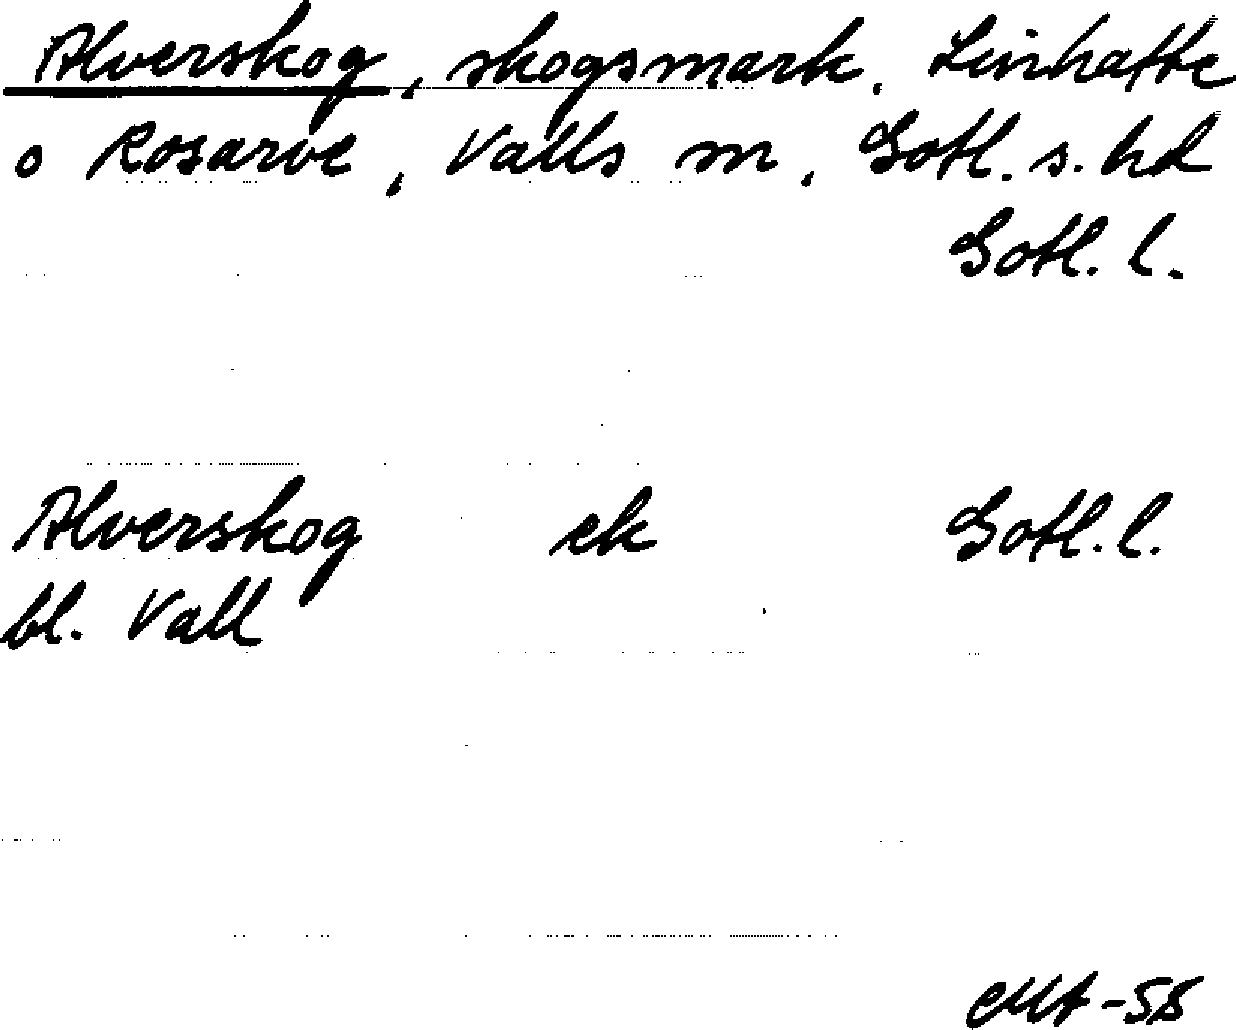 Alverskog, skogsmark. Linhatte
o Rosarve, Valls sn, Gotl. s. hd
Gotl. l.
Alverskog ek Gotl. l.
bl. Vall